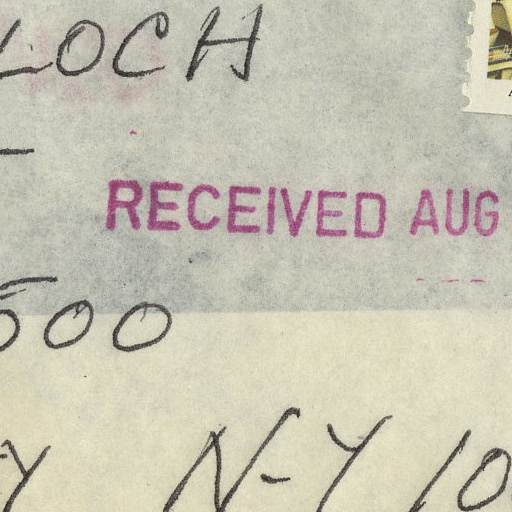 LOCH
RECEIVED AUG
500
Y N-Y 10